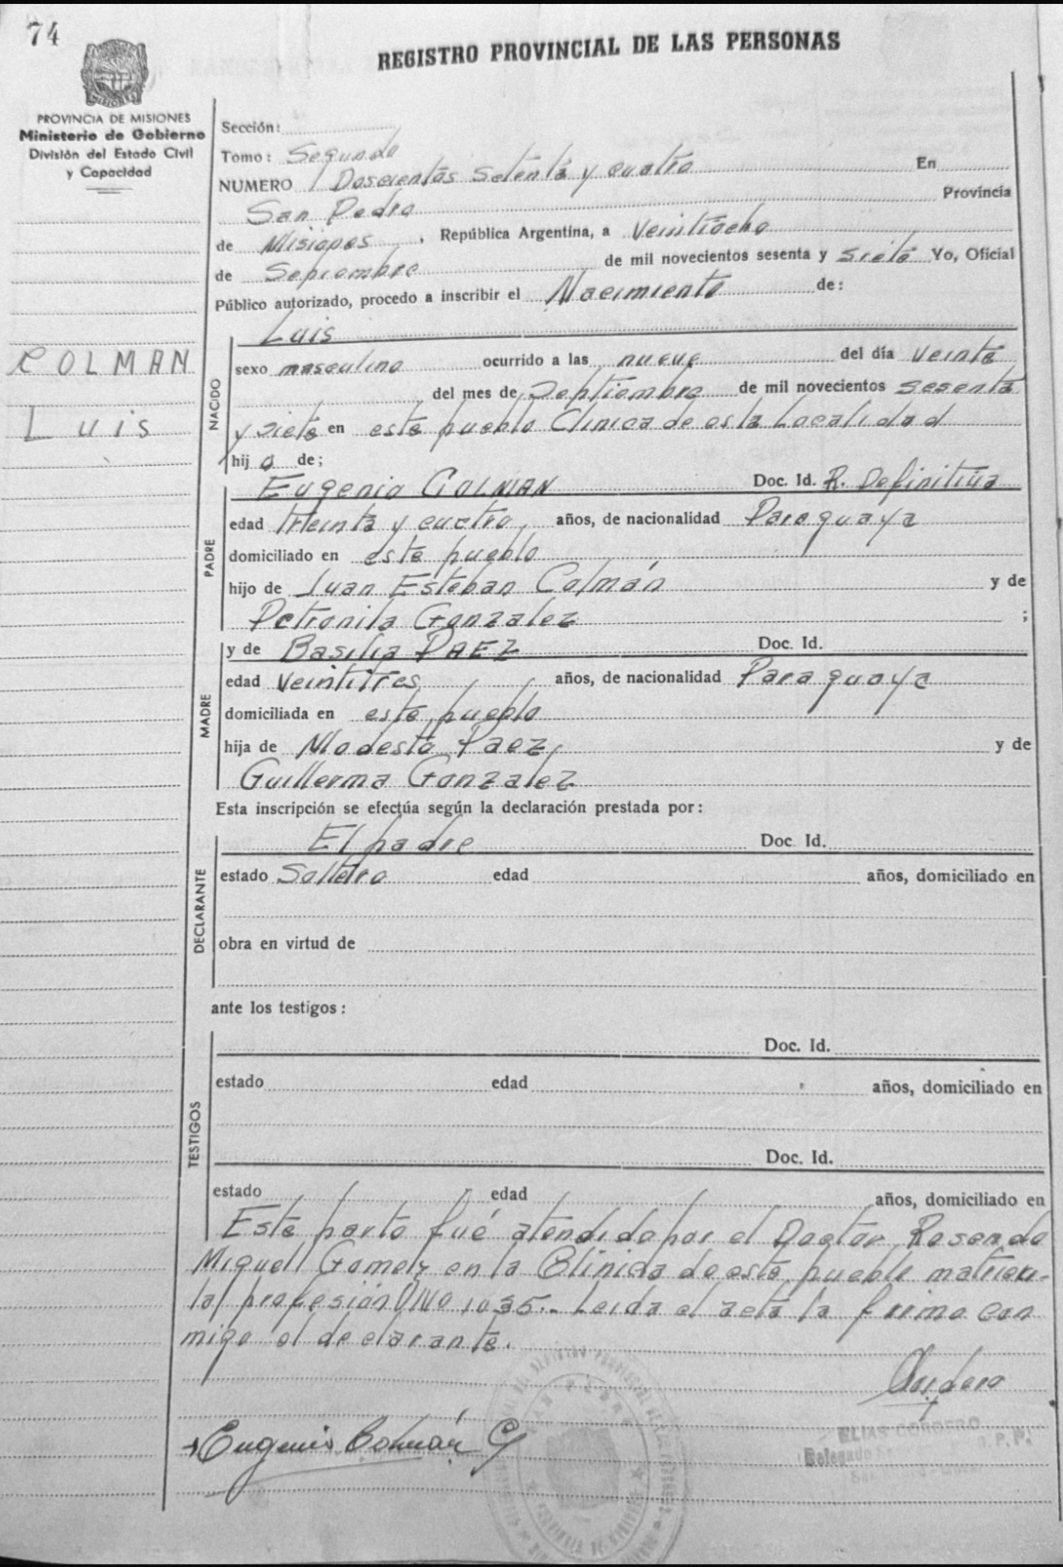 74
REGISTRO PROVINCIAL DE LAS PERSONAS
PROVINCIA DE MISIONES
Ministerio de Gobierno
División del Estado Civil
y Capacidad
Sección:
Tomo: Segundo
NUMERO Doscientos Setenta y cuatro En
San Pedro Provincia
de Misiones, República Argentina, a Veintiocho
de Septiembre de mil novecientos sesenta y siete Yo, Oficial
Público autorizado, procedo a inscribir el Nacimiento de:
COLMAN
Luis
NACIDO
Luis
sexo masculino ocurrido a las nueve del día veinte
del mes de Septiembre de mil novecientos sesenta
y siete en este pueblo Clinica de esta Localidad
hijo de;
PADRE
Eugenio COLMAN Doc. Id. R. Definitiva
edad treinta y cuatro años, de nacionalidad Paraguaya
domiciliado en este pueblo
hijo de Juan Esteban Colmán y de
Petronila Gonzalez ;
MADRE
y de Basilia PAEZ Doc. Id.
edad veintitres años, de nacionalidad Paraguaya
domiciliada en este pueblo
hija de Modesto Paez y de
Guillerma Gonzalez
Esta inscripción se efectúa según la declaración prestada por:
DECLARANTE
El padre Doc. Id.
estado Soltero edad años, domiciliado en
obra en virtud de
ante los testigos:
TESTIGOS
Doc. Id.
estado edad años, domiciliado en
Doc. Id.
estado edad años, domiciliado en
Este parto fué atendido por el Doctor Rosendo
Miguel Gomez en la Clinica de este pueblo matricu-
la profesion No 1035.- Leida el acta la firma con
migo el declarante.
Eugenio Colmán G
ELIAS CORDERO
Delegado